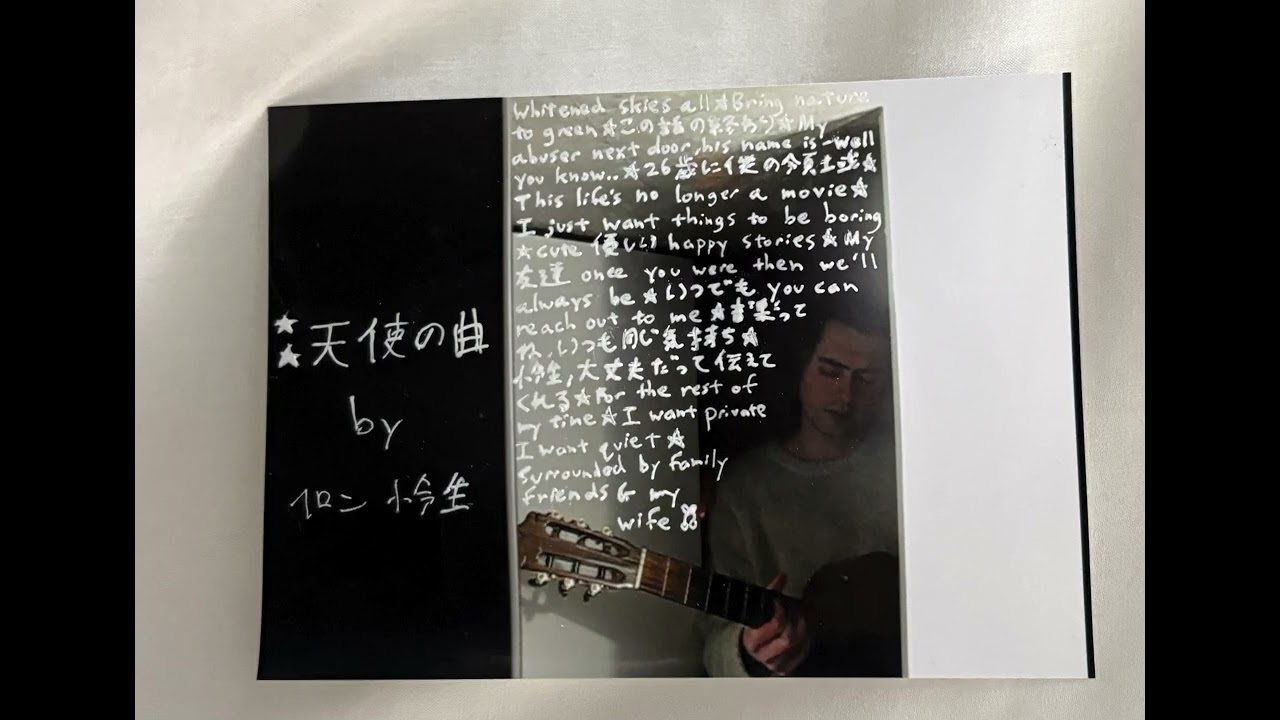 ★
★天使の曲
by
イロン 小今生
Whitened skies all★Bring nature
to green★この話の終わり★My
abuser next door, his name is-well
you know..★26歳に僕の
This life's no longer a movie★
I just want things to be boring
★cute 優しい happy stories★My
友達 once you were then we'll
always be★いつでも you can
reach out to me★言葉だって
ね、いつも同じ気持ち★
小今生, 大丈夫だって伝えて
くれる★For the rest of
my time★I want private
I want quiet★
Surrounded by family
friends & my
wife